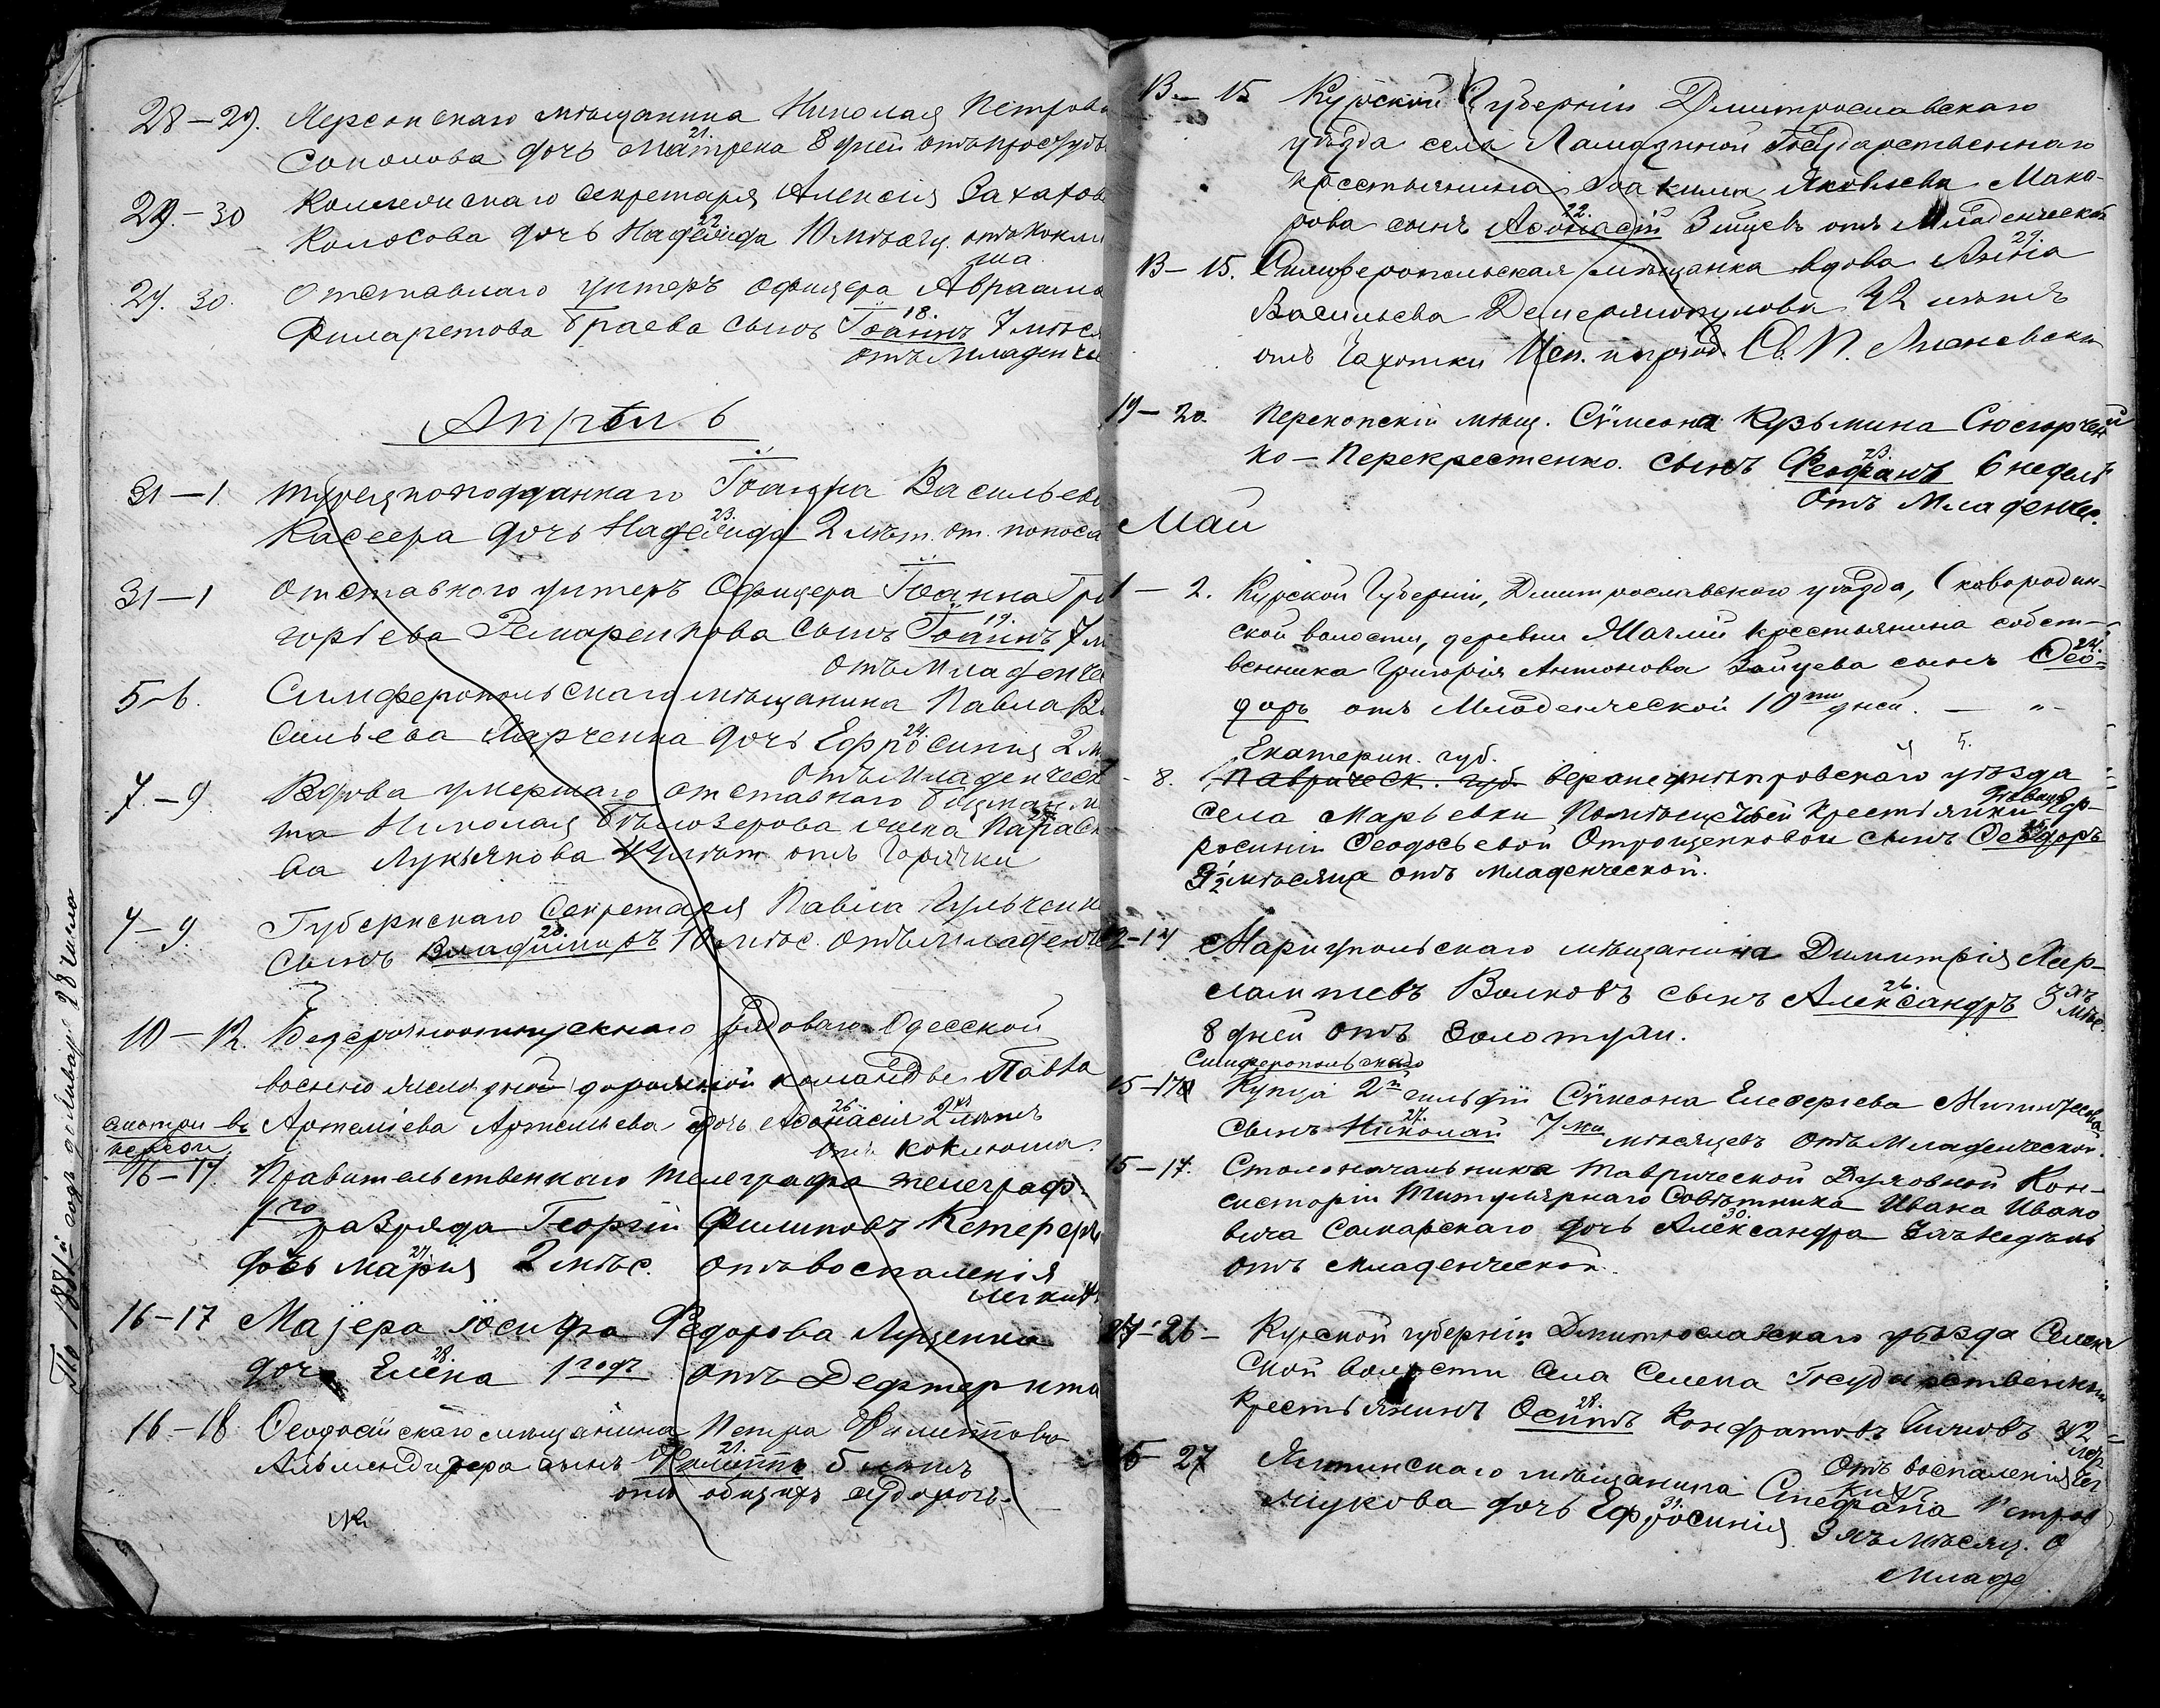 28 – 29. Херсонскаго мѣщанина Николая Петрова
21.
Соколова дочь Матрена 8 дней отъ простуды
29. – 30 Коллежскаго секретаря Алексія Захаров
22.
Колосова дочь Надежда 10 мѣсяц. отъ коклю
ша.
29. 30. Отставнаго унтеръ офицера Авраама
18.
Филаретова Браева сынъ Іоаннъ 7 мѣся
отъ Младенче
Апрѣль
31 – 1. Турецкоподданнаго Іоанна Васильев
23.
Кассера дочь Надежда 2 лѣт. от. поноса
31 – 1 Отставного унтеръ Офицера Іоанна Гри
19.
горьева Ремаренкова сынъ Іоаннъ 7 м
отъ младенче
5 – 6. Симферопольскаго мѣщанина Павла Ва
24.
сильева Марченка дочь Ефросинія 2 м
отъ Младенческ
7. – 9 Вдова умершаго отставнаго
та Николая Бѣлозерова жена Параске
ва Лукьянова лѣт отъ Горячки
7 – 9. Губернскаго Секретаря Павла Кульченк
20.
сынъ Владиміръ 10 мѣс. отъ младенче
10 – 12. Безсрочноотпускного рядоваго Одесской
военно дорожной команды Павла
26
смотри въ Артеміева Артемьева дочь Аѳонасія 2 лѣтъ
отъ коклюша.
16 – 17. Правительственнаго телеграфа телеграф.
1го разряда Георгій Филиповъ Кетерер
27.
дочь Марія 2 мѣс. отъ воспаленія
легкихъ
16 – 17 Маіера Іосифа Федорова Луценка
28.
дочь Елена 1 годъ отъ Дефтерита
16. – 18 Ѳеодосійскаго мѣщанина Петра Филиппова
21.
Альмендигера сынъ Филиппъ 5 лѣтъ
отъ общихъ судорогъ.
По 1881й годъ
13 – 15 Курской Губерніи Дмитрославскаго
уѣзда села Государственнаго
крестьянина Іоакима Яковлева Мака-
22.
рова сынъ Аѳонасій 3 мѣцевъ отъ Младенческой
29.
13 – 15. Симферопольская мѣщанка вдова Анна
Васильева 42 лѣтъ
отъ Чахотки Исп. и пріоб. Св. П.
19 – 20. Перекопскій мѣщ. Сѵмеона Кузьмина
23.
ко – Перекрестенко. сынъ Ѳеофанъ 6 недель
отъ Младенчес.
Май
1 – 2. Курской Губерніи, Дмитрославскаго уѣзда, Сковородин-
ской волости, деревни крестьянина собст-
24.
венника Григорія Антонова Зайцева сынъ Ѳео-
доръ отъ Младенческой 10ти дней. – " -
Екатерин. губ.
8. Таврическ. губ. верхнеднѣпровскаго уѣзда
села Марьевки Помѣщичьей крестьянки дѣвицы
росиніи Ѳеодосьевой Отрощенковой сынъ Ѳеодоръ
3 1/2 мѣсяца отъ младенческой.
12 – 14 Маріупольскаго мѣщанина Димитрія Хар-
26.
лампіевъ Волковъ сынъ Александръ 3хъ мѣс.
8 дней отъ Золотухи.
Симферопольскаго
15 – 17 Купца 2й гильдіи Сѵмеона Елеѳеріева
27.
сынъ Николай 7ми мѣсяцевъ отъ Младенческой.
15 – 17. Столоначальника Таврической Духовной Кон-
систоріи Титулярнаго Совѣтника Ивана Ивано
30.
вича Самарскаго дочь Александра недѣль
отъ Младенческой.
26 – Курской губерніи Дмитрославскаго уѣзда Селен
ской волости села Селена Государственный
28.
Крестьянинъ Осипъ Кондратовъ 42
отъ воспаленія лег
кихъ
27 Ялтинскаго мѣщанина Стефана Петров
31.
Жукова дочь Ефросинія 3хъ мѣсяц. о
Младе